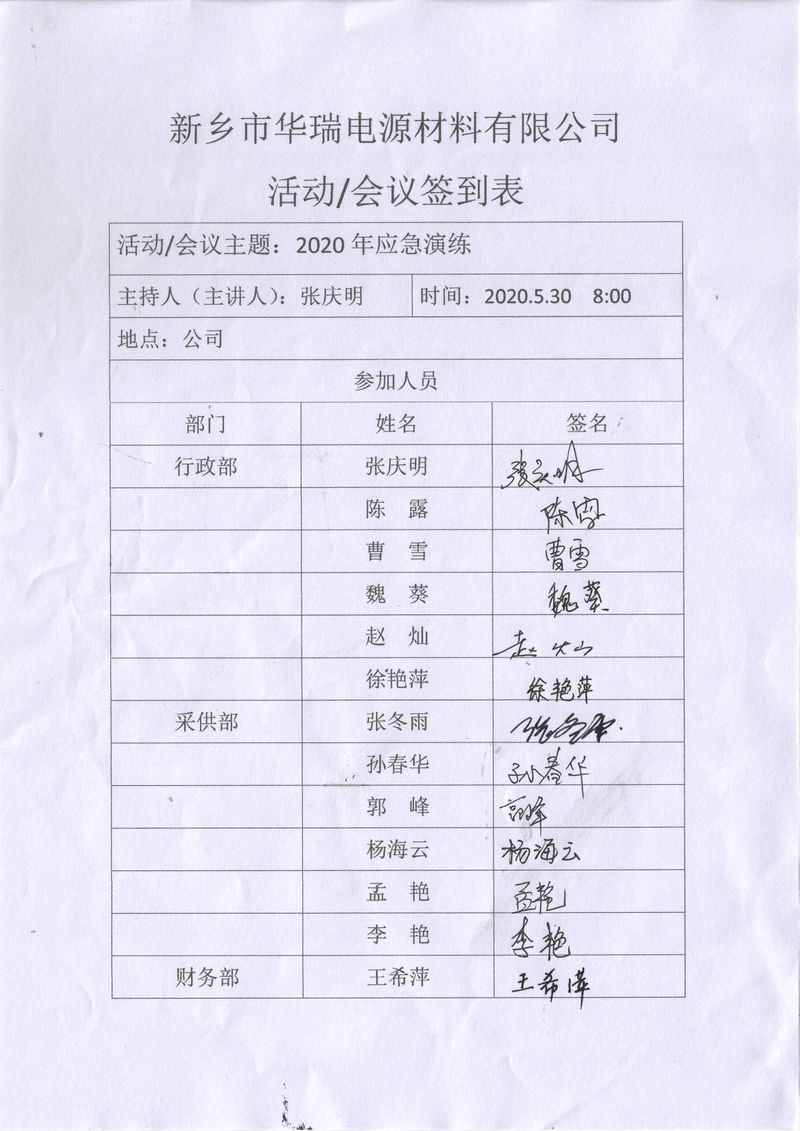 新乡市华瑞电源材料有限公司
活动/会议签到表
活动/会议主题：2020 年应急演练
主持人（主讲人）：张庆明 时间：2020.5.30 8:00
地点：公司
参加人员
部门 姓名 签名
行政部 张庆明 张庆明
陈 露 陈露
曹 雪 曹雪
魏 葵 魏葵
赵 灿 赵灿
徐艳萍 徐艳萍
采供部 张冬雨 张冬雨
孙春华 孙春华
郭 峰 郭峰
杨海云 杨海云
孟 艳 孟艳
李 艳 李艳
财务部 王希萍 王希萍